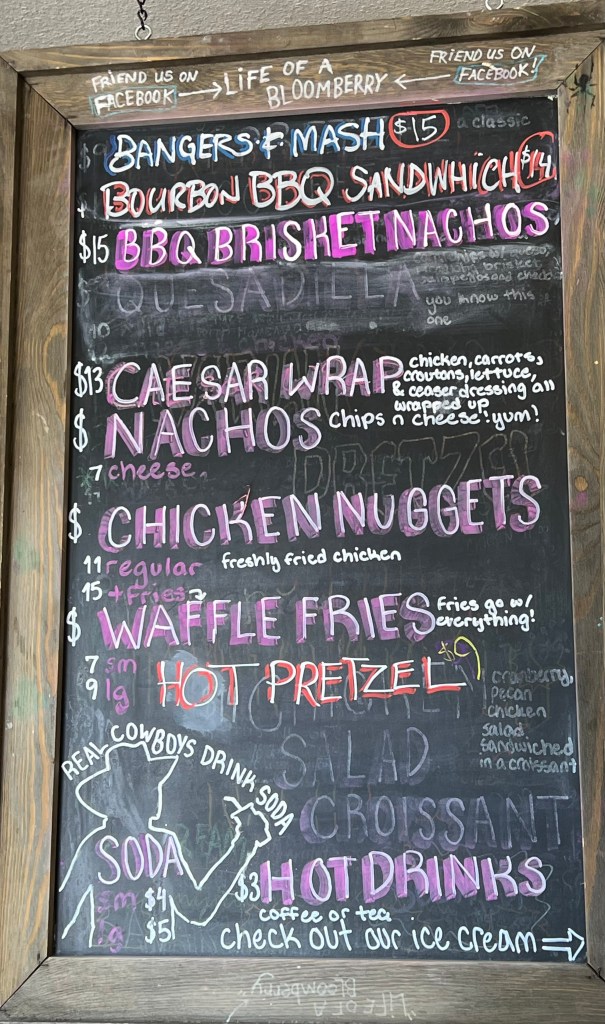 FRIEND US ON FACEBOOK → LIFE OF A BLOOMBERRY ← FRIEND US ON FACEBOOK!
BANGERS & MASH $15 a classic
BOURBON BBQ SANDWHICH $14
$15 BBQ BRISKET NACHOS
QUESADILLA
you know this
one
10
$13 CAESAR WRAP chicken, carrots,
croutons, lettuce,
& ceaser dressing all
wrapped up
$ NACHOS chips n cheese! yum!
7 cheese
PRETZEL
$ CHICKEN NUGGETS
11 regular freshly fried chicken
15 + fries
$ WAFFLE FRIES fries go w/
everything!
7 sm
9 lg
HOT PRETZEL $9
CHICKEN
SALAD
CROISSANT
cranberry,
pecan
chicken
salad
sandwiched
in a croissant
REAL COWBOYS DRINK SODA
SODA
sm $4
lg $5
$3 HOT DRINKS
coffee or tea
check out our ice cream →
LIFE OF A
Bloomberry